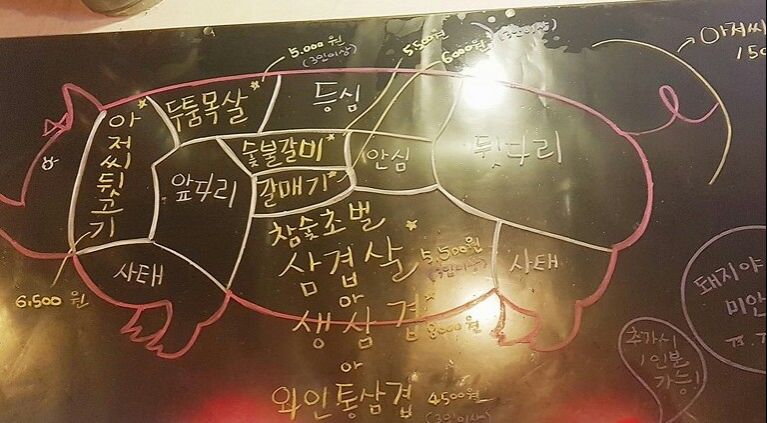 5.000원
(3인이상)
5.500원
6000원
(3인이상)
아저씨
150
두툼목살
등심
아저씨뒷고기
숯불갈비
안심
뒷다리
앞다리
갈매기
참숯초벌
삼겹살 5,500원
(3인이상)
사태
사태
6.500원
아
생삼겹 8000원
아
와인통삼겹 4500원
(3인이상)
돼지야
미안
추가시
1인분
가능!